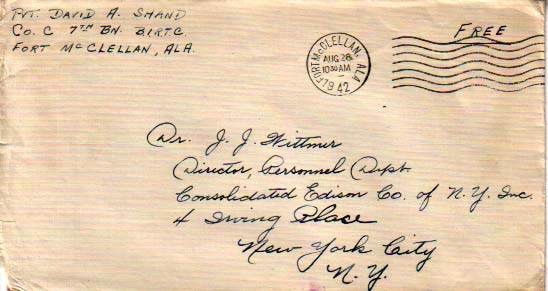 PVT. DAVID A. SHAND
CO. C 7TH BN. B.I.R.T.C.
FORT McCLELLAN, ALA.
FREE
FORT McCLELLAN, ALA
AUG 28
10 30 AM
1942
Dr. J. J. Wittmer
Director, Personnel Dept.
Consolidated Edison Co. of N. Y. Inc.
4 Irving Place
New York City
N. Y.